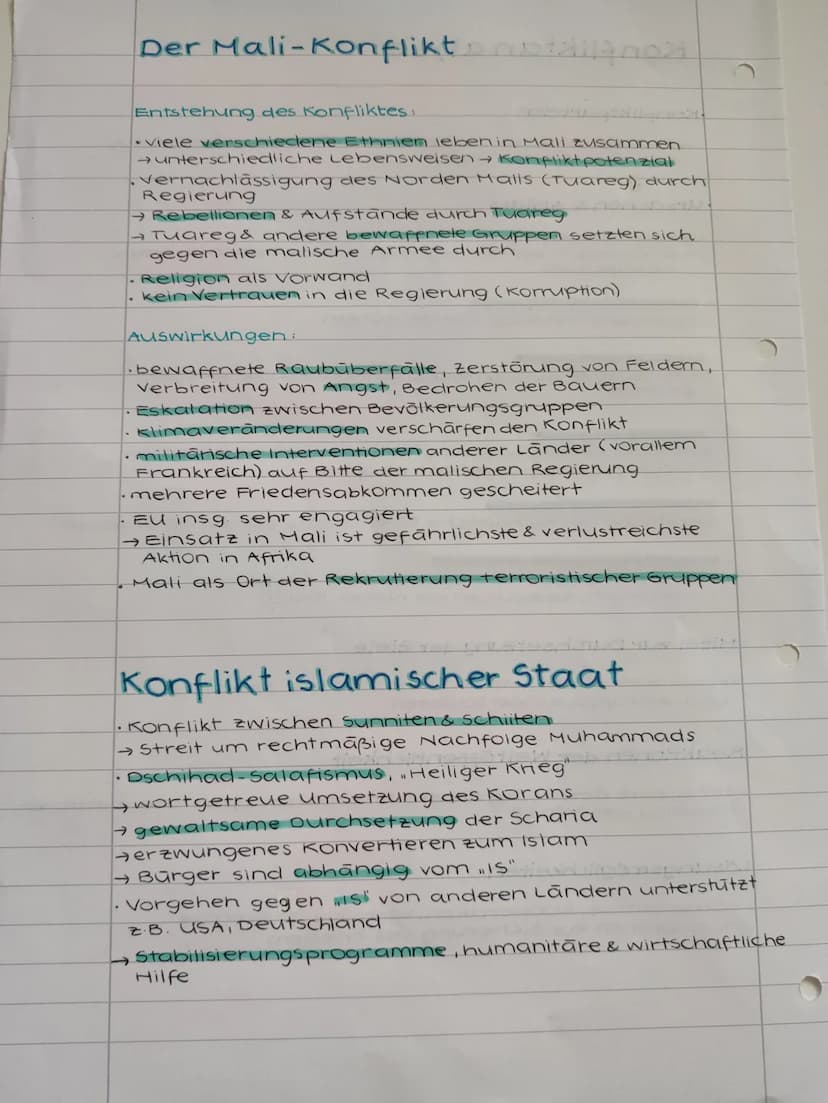 Der Mali-Konflikt
Entstehung des Konfliktes:
• viele verschiedene Ethnien leben in Mali zusammen
→ unterschiedliche Lebensweisen → Konfliktpotenzial
• Vernachlässigung des Norden Malis (Tuareg) durch
Regierung
→ Rebellionen & Aufstände durch Tuareg
→ Tuareg & andere bewaffnete Gruppen setzten sich
gegen die malische Armee durch
• Religion als Vorwand
• kein Vertrauen in die Regierung (Korruption)
Auswirkungen:
• bewaffnete Raubüberfälle, Zerstörung von Feldern,
Verbreitung von Angst, Bedrohen der Bauern
• Eskalation zwischen Bevölkerungsgruppen
• Klimaveränderungen verschärfen den Konflikt
• militärische Interventionen anderer Länder (vorallem
Frankreich) auf Bitte der malischen Regierung
• mehrere Friedensabkommen gescheitert
• EU insg. sehr engagiert
→ Einsatz in Mali ist gefährlichste & verlustreichste
Aktion in Afrika
• Mali als Ort der Rekrutierung terroristischer Gruppen
Konflikt islamischer Staat
• Konflikt zwischen Sunniten & Schiiten
→ Streit um rechtmäßige Nachfolge Muhammads
• Dschihad-Salafismus, „Heiliger Krieg"
→ wortgetreue Umsetzung des Korans
→ gewaltsame Durchsetzung der Scharia
→ erzwungenes Konvertieren zum Islam
→ Bürger sind abhängig vom „IS"
• Vorgehen gegen „IS" von anderen Ländern unterstützt
z.B. USA, Deutschland
→ Stabilisierungsprogramme, humanitäre & wirtschaftliche
Hilfe